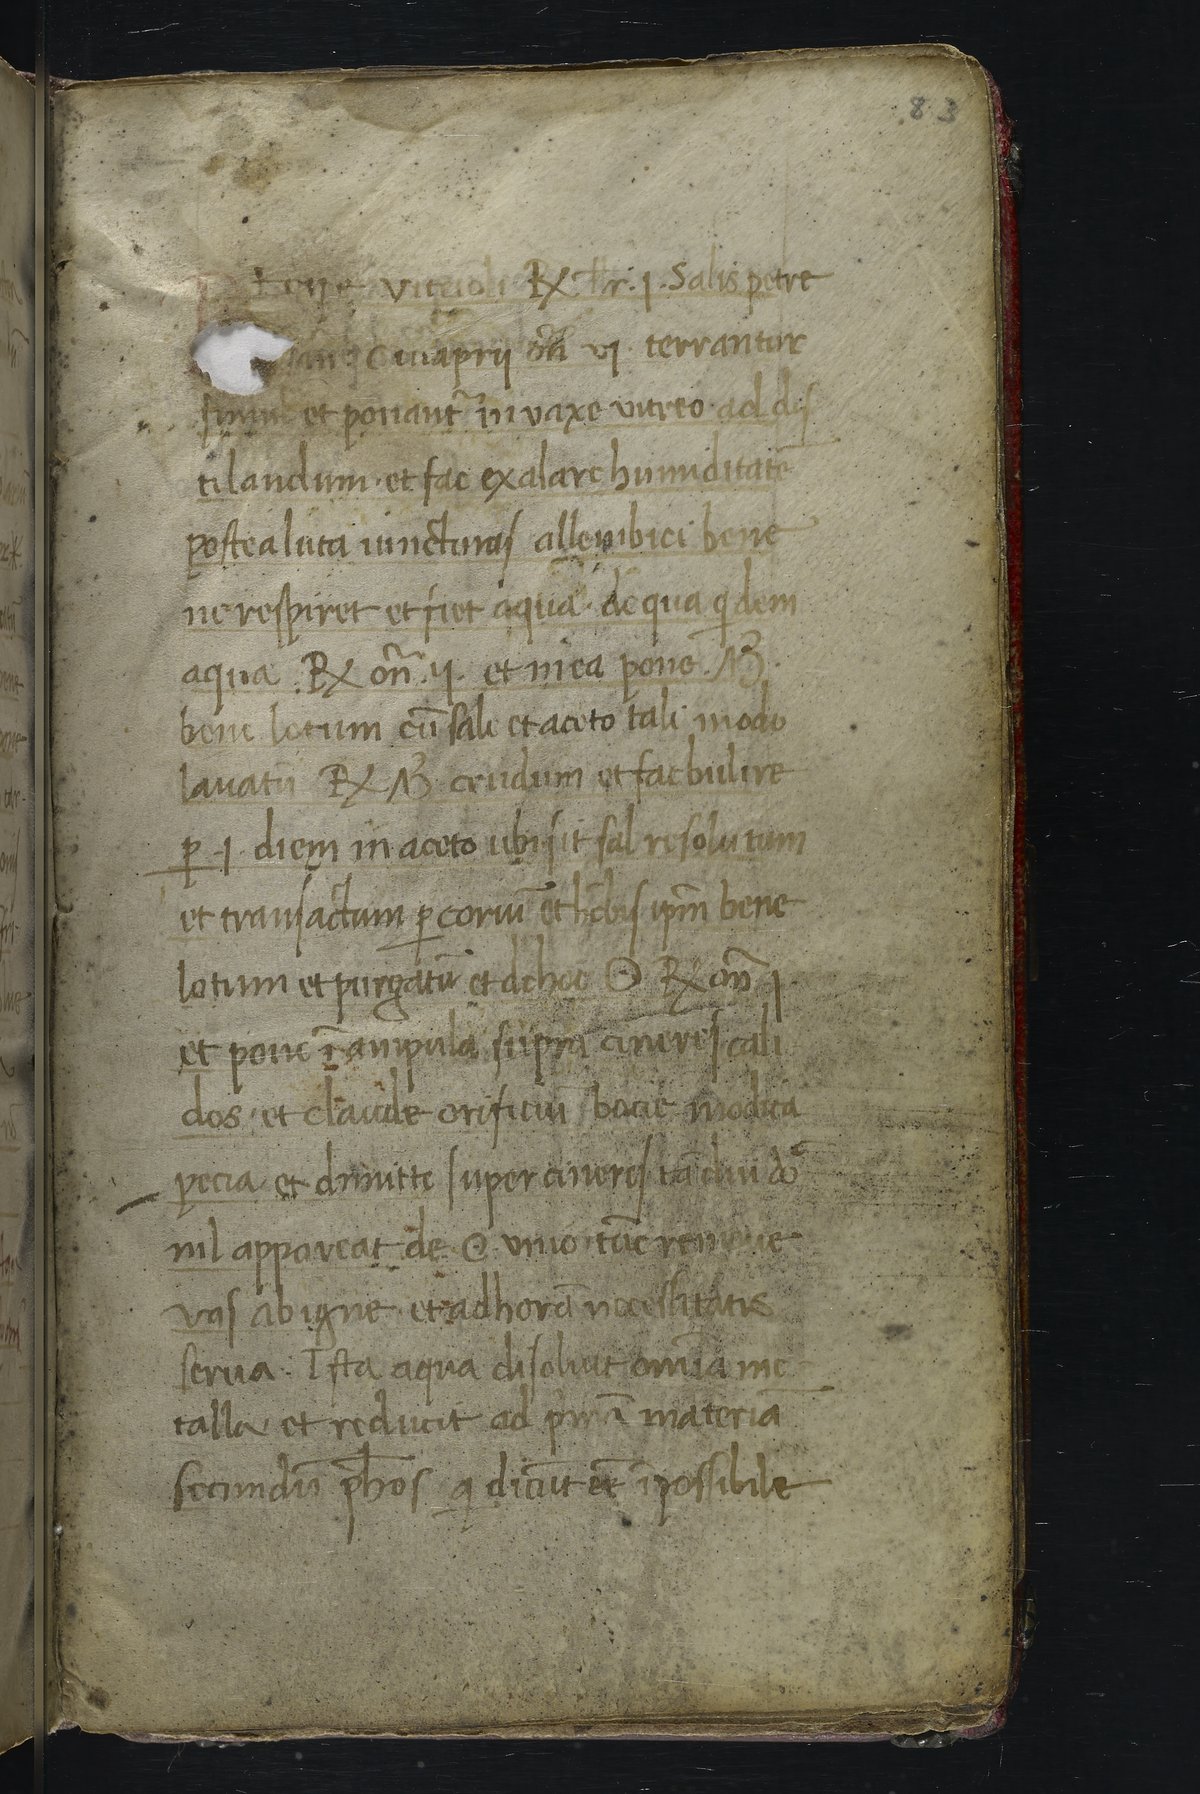 83
vitrioli ℞ lr. j. Salis petre
Cinaprii on̄ vj. terrantur
simul et ponant᷑ in vaxe vitreo ad dis
tilandum. et fac exalare humiditatē
postea luta iuncturas allembici bene
ne respiret et fiet aqua. de qua qͥdem
aqua ℞ on̄. ij. et in ea pone
bene lotum cū sale et aceto tali modo
lauatū ℞ crudum et fac bulire
ꝑ .j. diem in aceto ubi sit sal resolutum
et transactum ꝑ coriū et hēbis ip̄m bene
lotum et purgatū et de hoc ☉ ℞ on̄ j
et pone ī ampula supra cineres cali
dos. et claude orificiū bocie modica
pecia et dimitte super cineres tā diu
nil appareat de ☉ viuo tūc remoue
vas ab igne et ad horā necessitatis
serua. Ista aqua disoluit omīa me
talla et reducit ad pͥmā materiā
secundū ph̄os qͥ dicūt eē īpossibile